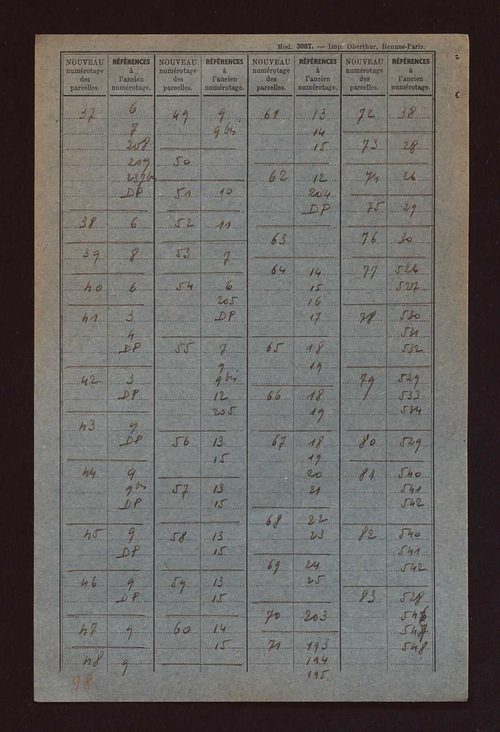 Mod. 3007. — Imp. Oberthur, Rennes-Paris.
NOUVEAU numérotage des parcelles. RÉFÉRENCES à l'ancien numérotage.
37 6
7
208
209
DP
38 6
39 8
40 6
41 3
4
DP
42 3
DP
43 9
DP
44 9
9bis
DP
45 9
DP
46 9
DP
47 9
48 9
98
NOUVEAU numérotage des parcelles. RÉFÉRENCES à l'ancien numérotage.
49 9
9bis
50
51 10
52 11
53 7
54 6
205
DP
55 7
9
9bis
12
205
56 13
15
57 13
15
58 13
15
59 13
15
60 14
15
NOUVEAU numérotage des parcelles. RÉFÉRENCES à l'ancien numérotage.
61 13
14
15
62 12
204
DP
63
64 14
15
16
17
65 18
19
66 18
19
67 18
19
20
21
68 22
23
69 24
25
70 203
71 193
194
195
NOUVEAU numérotage des parcelles. RÉFÉRENCES à l'ancien numérotage.
72 38
73 28
74 26
75 29
76 30
77 526
527
78 530
531
532
79 529
533
534
80 529
81 540
541
542
82 540
541
542
83 528
548